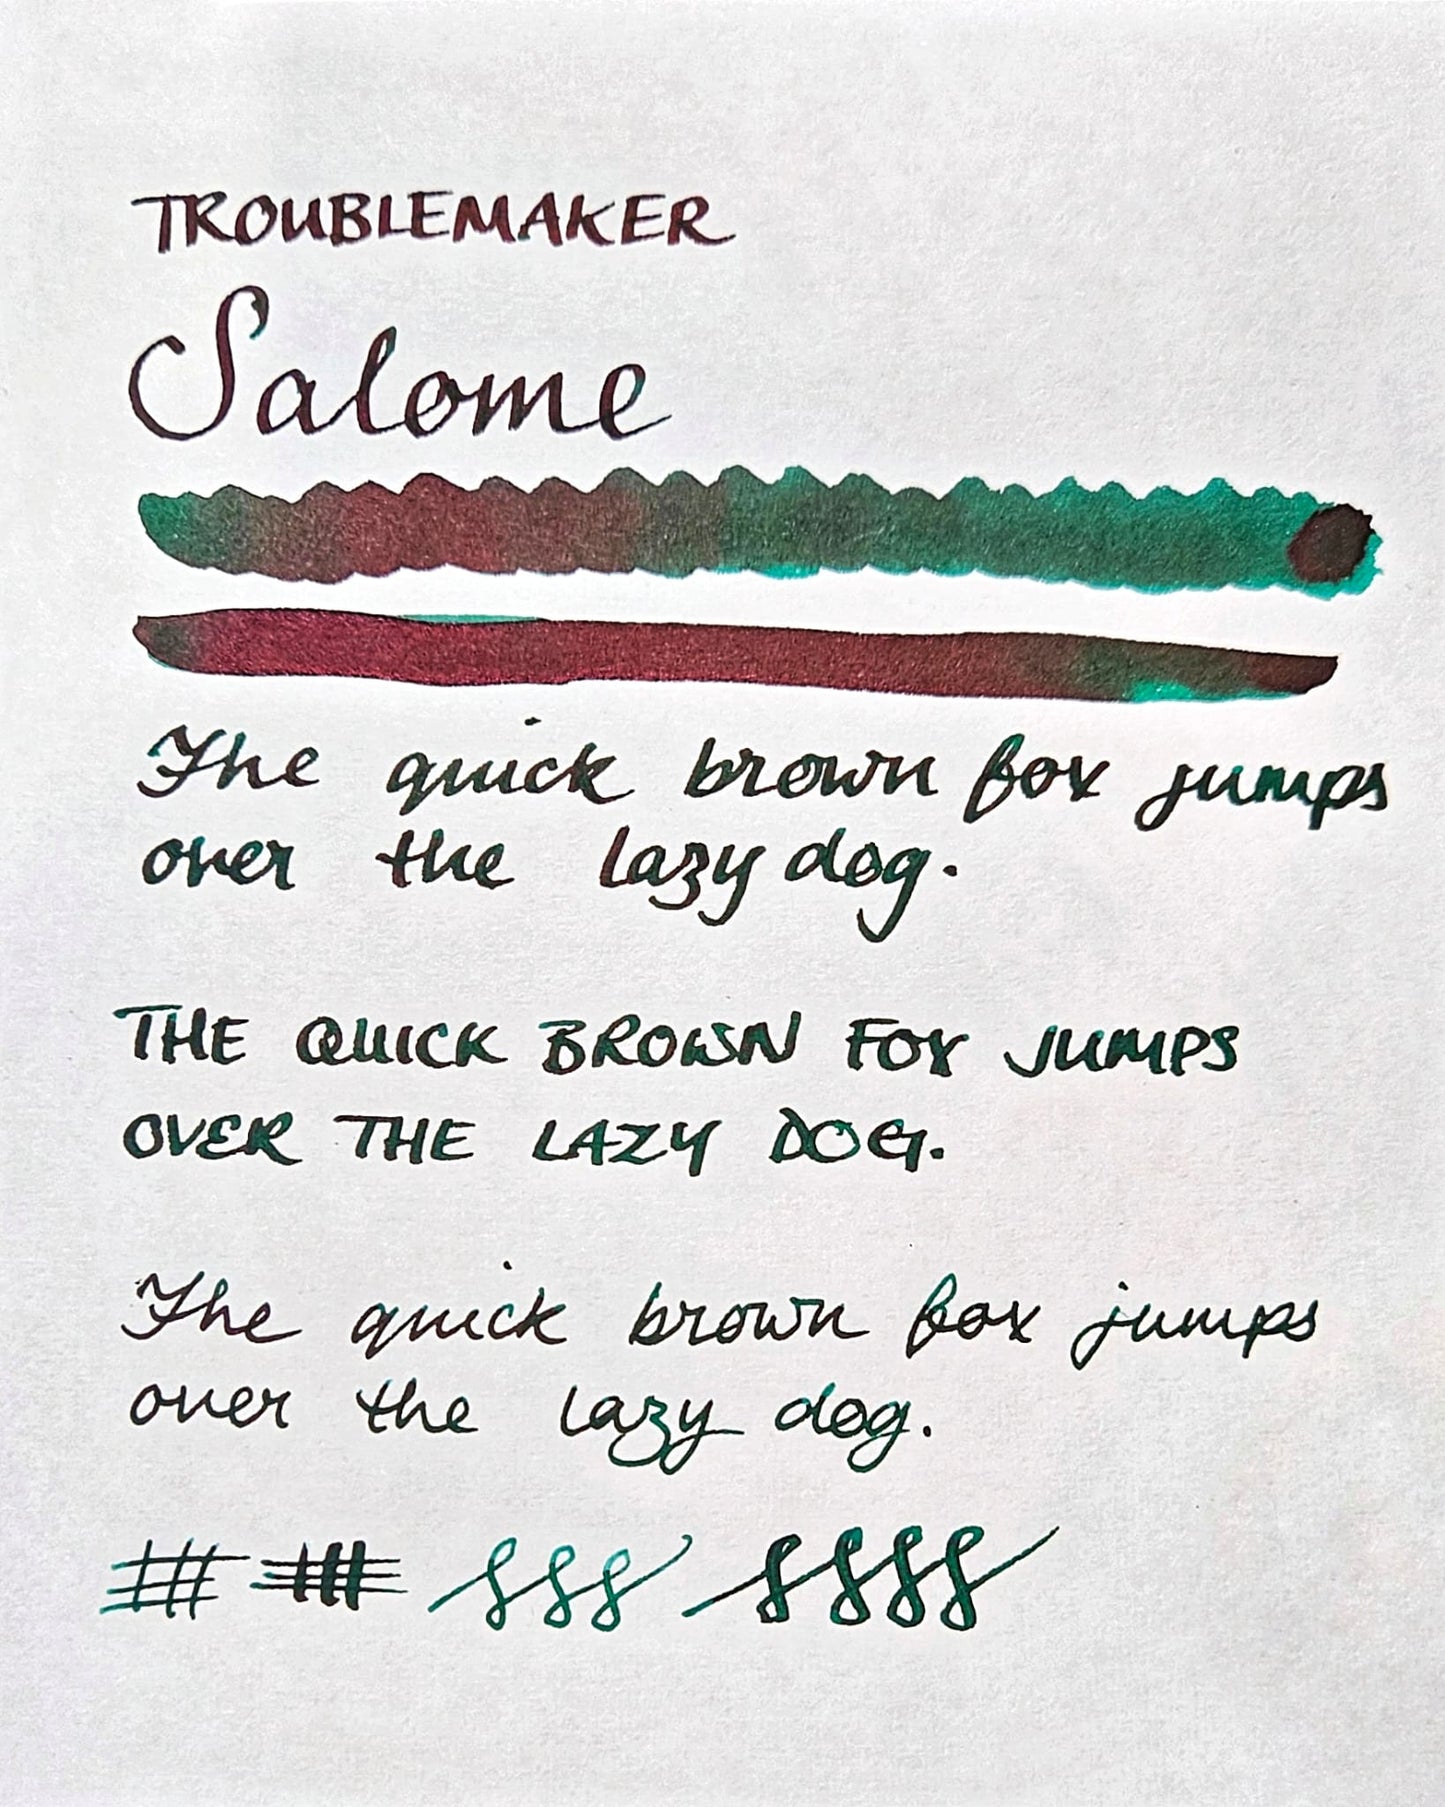 TROUBLEMAKER
Salome
The quick brown fox jumps
over the lazy dog.
THE QUICK BROWN FOX JUMPS
OVER THE LAZY DOG.
The quick brown fox jumps
over the lazy dog.